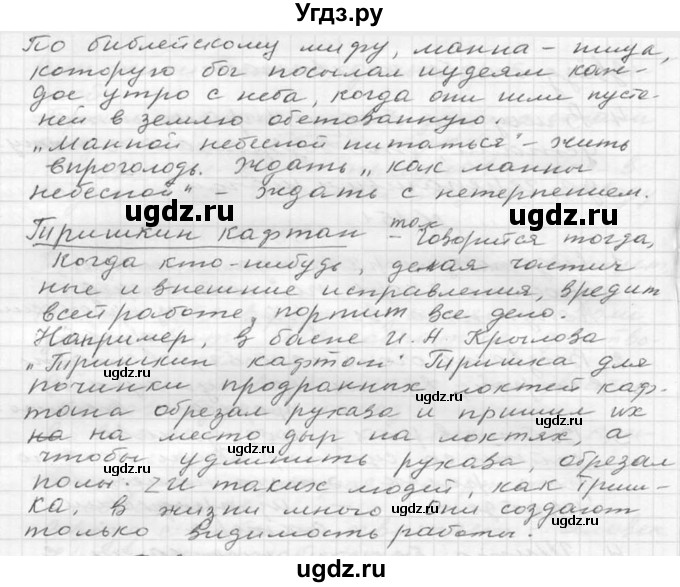 Угдз.ру
По библейскому мифу, манна – пища,
которую бог посылал иудеям каж-
дое утро с неба, когда они шли пусты-
ней в землю обетованную.
„Манной небесной питаться" – жить
впроголодь. Ждать „как манны
небесной" – ждать с нетерпением.
ugdz.ru
ugdz.ru
Тришкин кафтан – так говорится тогда,
Когда кто-нибудь, делая частич
ные и внешние исправления, вредит
всей работе, портит все дело.
ugdz.ru
ugdz.ru
Например, в басне И. А Крылова
„Тришкин кафтан" Тришка для
починки продранных локтей каф-
ugdz.ru
ugdz.ru
тана обрезал рукава и пришил их
на на место дыр на локтях, а
чтобы удлинить рукава, обрезал
ugdz.ru
полы. И таких людей, как Триш-
ка, в жизни много они создают
ugdz.ru
только видимость работы.
ugdz.ru
ugdz.ru